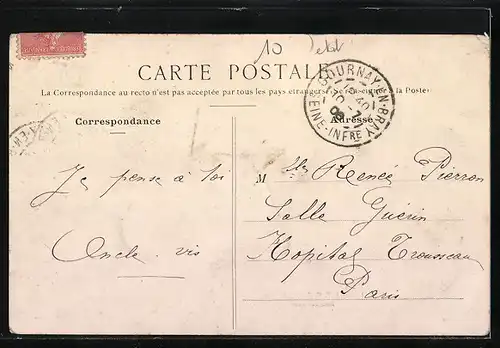 10
CARTE POSTALE
(La Correspondance au recto n'est pas acceptée par tous les pays étrangers. Se renseigner à la Poste)
Correspondance
Adresse
GOURNAY-EN-BRAY
SEINE-INFRE
Je pense à toi
Oncle
M lle Renée Pierron
Salle Guérin
Hopital Trousseau
Paris